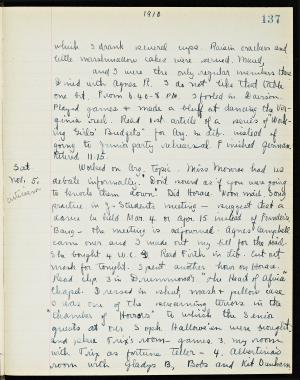 1910
137
which I drank several cups. Raisin crackers and
little marshmallow cakes were served. Maud,
and I were the only regular members there
Dined with Agnes R. I do not like that table
one bit. From 6.40-8 P.M. I fooled in Davison
Played games & made a bluff at dancing the Vir-
ginia reel. Read 1st article of a series of "Work-
ing Girls' Budgets" for Arg. in lib. instead of
going to Junior party rehearsal. Finished German
Retired 11.15.
Sat.
Nov. 5.
Worked on Arg. Topic. Miss Monroe had us
debate informally. "Don't sound as if you were going
to knock them down" Did Horace. Noon said song
practice in J - Students meeting - suggest that a
dance be held Mar. 4 or Apr 15 instead of Founder's
Bang - the meeting is adjourned. Agnes Campbell
came over and I made out my bill for the
She bought 4 W.C. Read Firth in lib. Cut art
mark for tonight. I spent another hour on Horace.
Read Chp. 3 in Drummond's "The Heart of Africa"
Chapel. Dressed in sheet, mask & pillow case
I was one of the screaming terrors in the
"Chamber of Horrors" to which the Senior
guests at our Soph. Hallowe'en were brought
and Trix's room games. 3. my room
with Trix as fortune teller - 4. Albertina's
room with Gladys B, Bobs and Kit Dunham